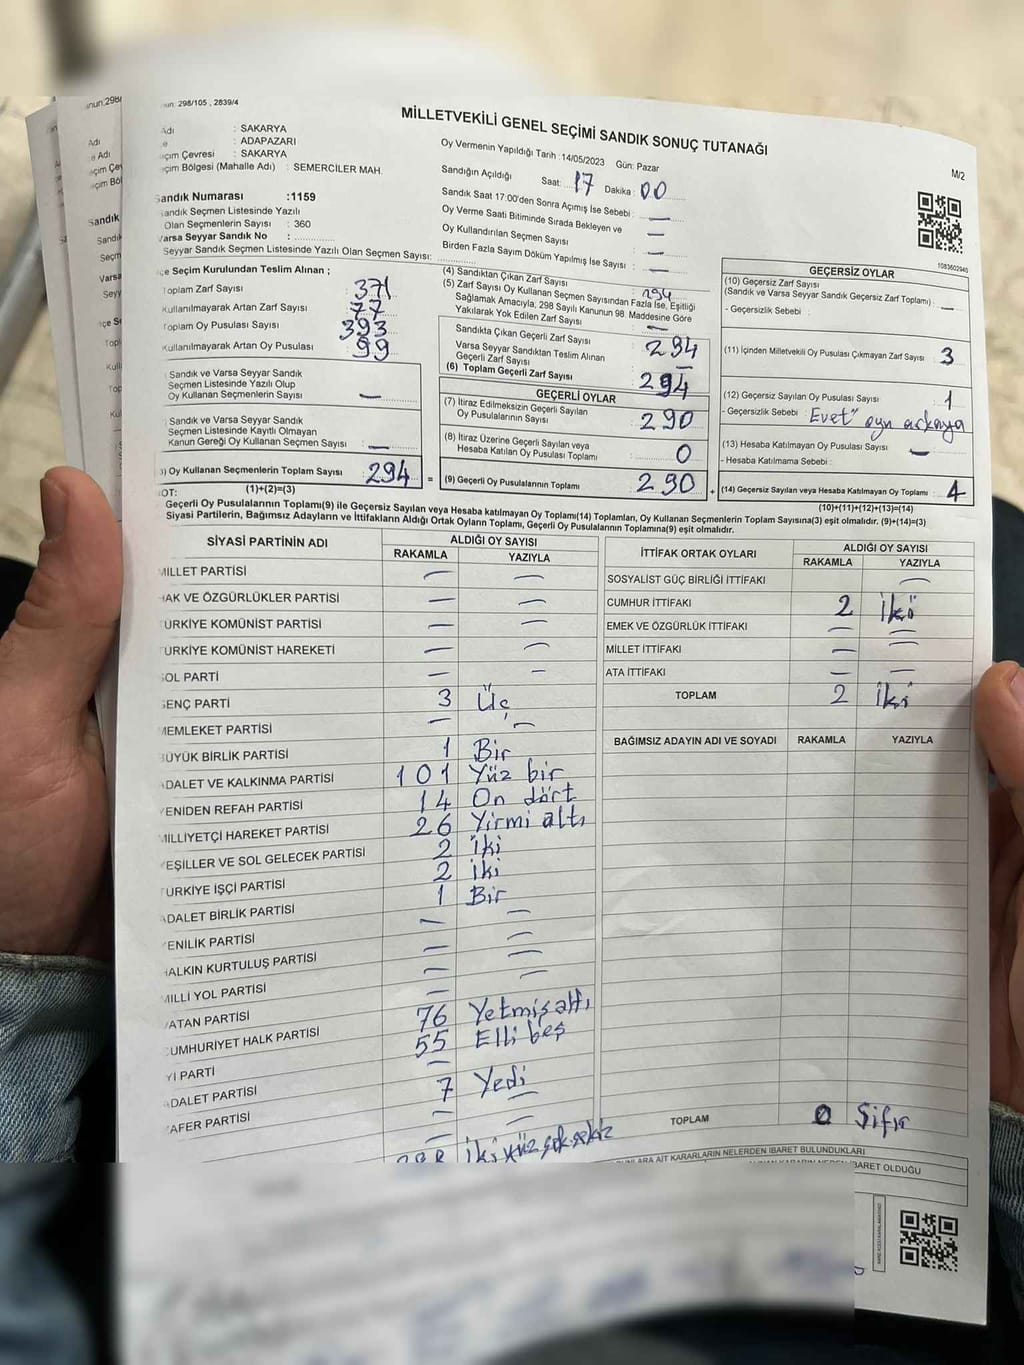 nun: 298/105 , 2839/4
MİLLETVEKİLİ GENEL SEÇİMİ SANDIK SONUÇ TUTANAĞI
M/2
Adı : SAKARYA
: ADAPAZARI
çim Çevresi : SAKARYA
çim Bölgesi (Mahalle Adı) : SEMERCİLER MAH.
Sandık Numarası :1159
Sandık Seçmen Listesinde Yazılı
Olan Seçmenlerin Sayısı : 360
Varsa Seyyar Sandık No :
Seyyar Sandık Seçmen Listesinde Yazılı Olan Seçmen Sayısı:
Oy Vermenin Yapıldığı Tarih :14/05/2023 Gün: Pazar
Sandığın Açıldığı Saat: 17 Dakika : 00
Sandık Saat 17:00'den Sonra Açımış İse Sebebi : —
Oy Verme Saati Bitiminde Sırada Bekleyen ve
Oy Kullandırılan Seçmen Sayısı : —
Birden Fazla Sayım Döküm Yapılmış İse Sayısı : —
çe Seçim Kurulundan Teslim Alınan ;
Toplam Zarf Sayısı : 371
Kullanılmayarak Artan Zarf Sayısı : 77
Toplam Oy Pusulası Sayısı : 393
Kullanılmayarak Artan Oy Pusulası : 99
Sandık ve Varsa Seyyar Sandık
Seçmen Listesinde Yazılı Olup
Oy Kullanan Seçmenlerin Sayısı : —
Sandık ve Varsa Seyyar Sandık
Seçmen Listesinde Kayıtlı Olmayan
Kanun Gereği Oy Kullanan Seçmen Sayısı : —
3) Oy Kullanan Seçmenlerin Toplam Sayısı : 294 =
(1)+(2)=(3)
(4) Sandıktan Çıkan Zarf Sayısı : 294
(5) Zarf Sayısı Oy Kullanan Seçmen Sayısından Fazla İse, Eşitliği
Sağlamak Amacıyla, 298 Sayılı Kanunun 98. Maddesine Göre
Yakılarak Yok Edilen Zarf Sayısı : —
Sandıkta Çıkan Geçerli Zarf Sayısı : 294
Varsa Seyyar Sandıktan Teslim Alınan
Geçerli Zarf Sayısı : —
(6) Toplam Geçerli Zarf Sayısı : 294
GEÇERLİ OYLAR
(7) İtiraz Edilmeksizin Geçerli Sayılan
Oy Pusulalarının Sayısı : 290
(8) İtiraz Üzerine Geçerli Sayılan veya
Hesaba Katılan Oy Pusulası Toplamı : 0
(9) Geçerli Oy Pusulalarının Toplamı : 290 +
GEÇERSİZ OYLAR
1083602940
(10) Geçersiz Zarf Sayısı
(Sandık ve Varsa Seyyar Sandık Geçersiz Zarf Toplamı) : —
- Geçersizlik Sebebi :
(11) İçinden Milletvekili Oy Pusulası Çıkmayan Zarf Sayısı : 3
(12) Geçersiz Sayılan Oy Pusulası Sayısı : 1
- Geçersizlik Sebebi : Evet"
(13) Hesaba Katılmayan Oy Pusulası Sayısı : —
- Hesaba Katılmama Sebebi :
(14) Geçersiz Sayılan veya Hesaba Katılmayan Oy Toplamı : 4
(10)+(11)+(12)+(13)=(14)
OT:
Geçerli Oy Pusulalarının Toplamı(9) ile Geçersiz Sayılan veya Hesaba katılmayan Oy Toplamı(14) Toplamları, Oy Kullanan Seçmenlerin Toplam Sayısına(3) eşit olmalıdır. (9)+(14)=(3)
Siyasi Partilerin, Bağımsız Adayların ve İttifakların Aldığı Ortak Oyların Toplamı, Geçerli Oy Pusulalarının Toplamına(9) eşit olmalıdır.
SİYASİ PARTİNİN ADI ALDIĞI OY SAYISI
RAKAMLA YAZIYLA
MİLLET PARTİSİ — —
HAK VE ÖZGÜRLÜKLER PARTİSİ — —
ÜRKİYE KOMÜNİST PARTİSİ — —
ÜRKİYE KOMÜNİST HAREKETİ — —
SOL PARTİ — —
GENÇ PARTİ 3 Üç
MEMLEKET PARTİSİ — —
BÜYÜK BİRLİK PARTİSİ 1 Bir
ADALET VE KALKINMA PARTİSİ 101 Yüz bir
YENİDEN REFAH PARTİSİ 14 On dört
MİLLİYETÇİ HAREKET PARTİSİ 26 Yirmi altı
YEŞİLLER VE SOL GELECEK PARTİSİ 2 İki
TÜRKİYE İŞÇİ PARTİSİ 2 İki
ADALET BİRLİK PARTİSİ 1 Bir
YENİLİK PARTİSİ — —
HALKIN KURTULUŞ PARTİSİ — —
MİLLİ YOL PARTİSİ — —
VATAN PARTİSİ —
CUMHURİYET HALK PARTİSİ 76 Yetmiş altı
Yİ PARTİ 55 Elli beş
ADALET PARTİSİ —
ZAFER PARTİSİ 7 Yedi
— —
288 İki yüz seksen sekiz
İTTİFAK ORTAK OYLARI ALDIĞI OY SAYISI
RAKAMLA YAZIYLA
SOSYALİST GÜÇ BİRLİĞİ İTTİFAKI —
CUMHUR İTTİFAKI 2 İki
EMEK VE ÖZGÜRLÜK İTTİFAKI — —
MİLLET İTTİFAKI — —
ATA İTTİFAKI — —
TOPLAM 2 İki
BAĞIMSIZ ADAYIN ADI VE SOYADI RAKAMLA YAZIYLA
TOPLAM 0 Sıfır
BUNLARA AİT KARARLARIN NELERDEN İBARET BULUNDUKLARI
İBARET OLDUĞU